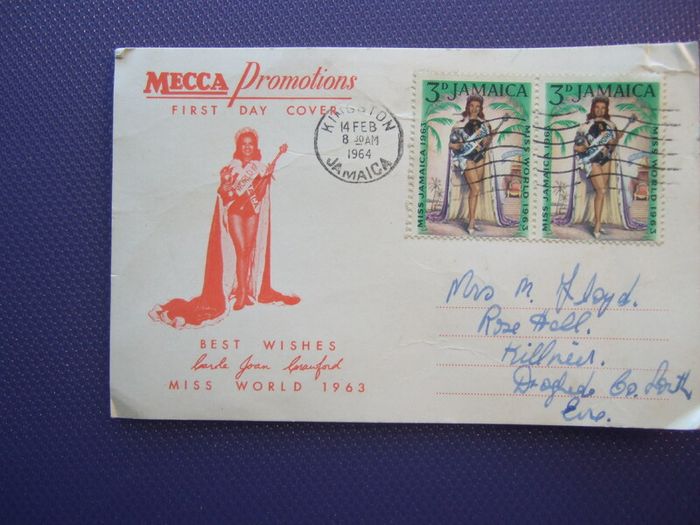 MECCA Promotions
FIRST DAY COVER
KINGSTON
14 FEB
8 30 AM
1964
JAMAICA
3D JAMAICA
MISS JAMAICA 1963
MISS WORLD 1963
3D JAMAICA
MISS JAMAICA 1963
MISS WORLD 1963
BEST WISHES
Carole Joan Crawford
MISS WORLD 1963
Mrs M. Floyd.
Rose Hall.
Killneir.
Drogheda Co. Louth
Eire.